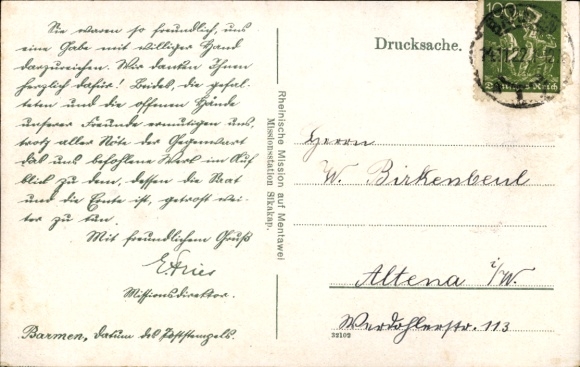 Sie waren so freundlich, uns
eine Gabe mit williger Hand
darzureichen. Wir danken Ihnen
herzlich dafür! Beides, die gefal-
teten und die offenen Hände
unserer Freunde ermutigen uns,
trotz aller Nöte der Gegenwart
das uns befohlene Werk im Auf-
blick zu dem, dessen die Saat
und die Ernte ist, getrost wei-
ter zu tun.
Mit freundlichem Gruß
EFries
Missionsdirektor.
Barmen, Datum des Poststempels.
Rheinische Mission auf Mentawei
Missionsstation Sikakap.
Drucksache.
100
Deutsches Reich
Herrn
W. Birkenbeul
Altena i/W.
Werdohlerstr. 113
32102